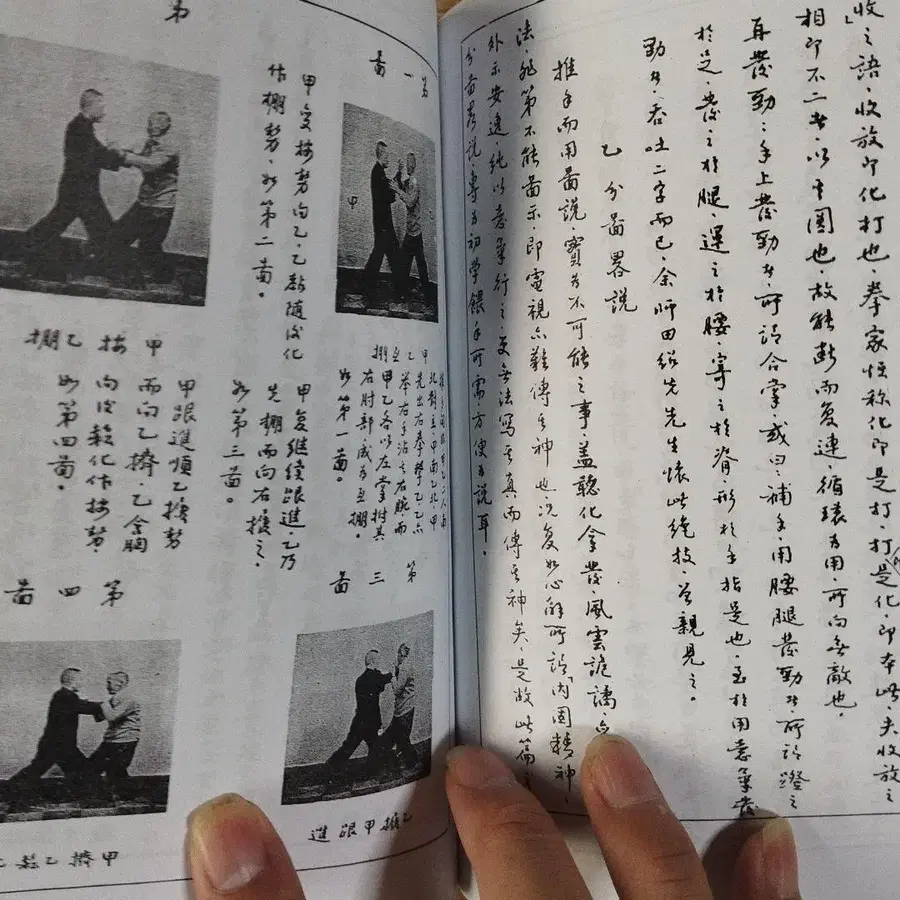 收之語．收放即化打也．拳家恆称化即是打．打是化．即本此．夫收放之
相即不二者．以其圓也．故能斷而复連．循環為用．所向無敵也．
耳發勁：手上發勁者．所謂合掌．或曰補手．用腰腿發勁者．所謂蹬之
於足．發之於腿．運之於腰．寄之於脊．形於手指是也．至於用意氣發
勁者．吞吐二字而已．余師田紹先先生懷此絕技．曾親見之。
乙 分畐畧說
推手而用畐說．實為不可能之事．盖聽化拿發．風雲詭譎．亦
法．能第不能畐示．即電視亦難傳其神也．况复如心解所謂「内固精神、
外示安逸．純以意氣行之．更無法寫其真而傳其神矣．是故此篇之
分畐畧說．專為初學餵手所需方便為說耳。
第一畐
甲
乙
甲乙互掤
北對立甲南乙北．甲
先出右拳擊乙乙亦
举右手沾之右腕而
甲乙各以左掌拊其
右肘部成為互掤．
如第一畐。
甲变按势向乙．乙
作掤势．如第二畐。
甲按乙掤
甲复继续跟進．乙乃
先掤而向右捋之．
如第三畐。
第三畐
乙捋甲跟進
甲跟進順乙捋势
而向乙擠．乙含胸
向後鬆化作按势．
如第四畐。
第四畐
甲擠乙鬆化